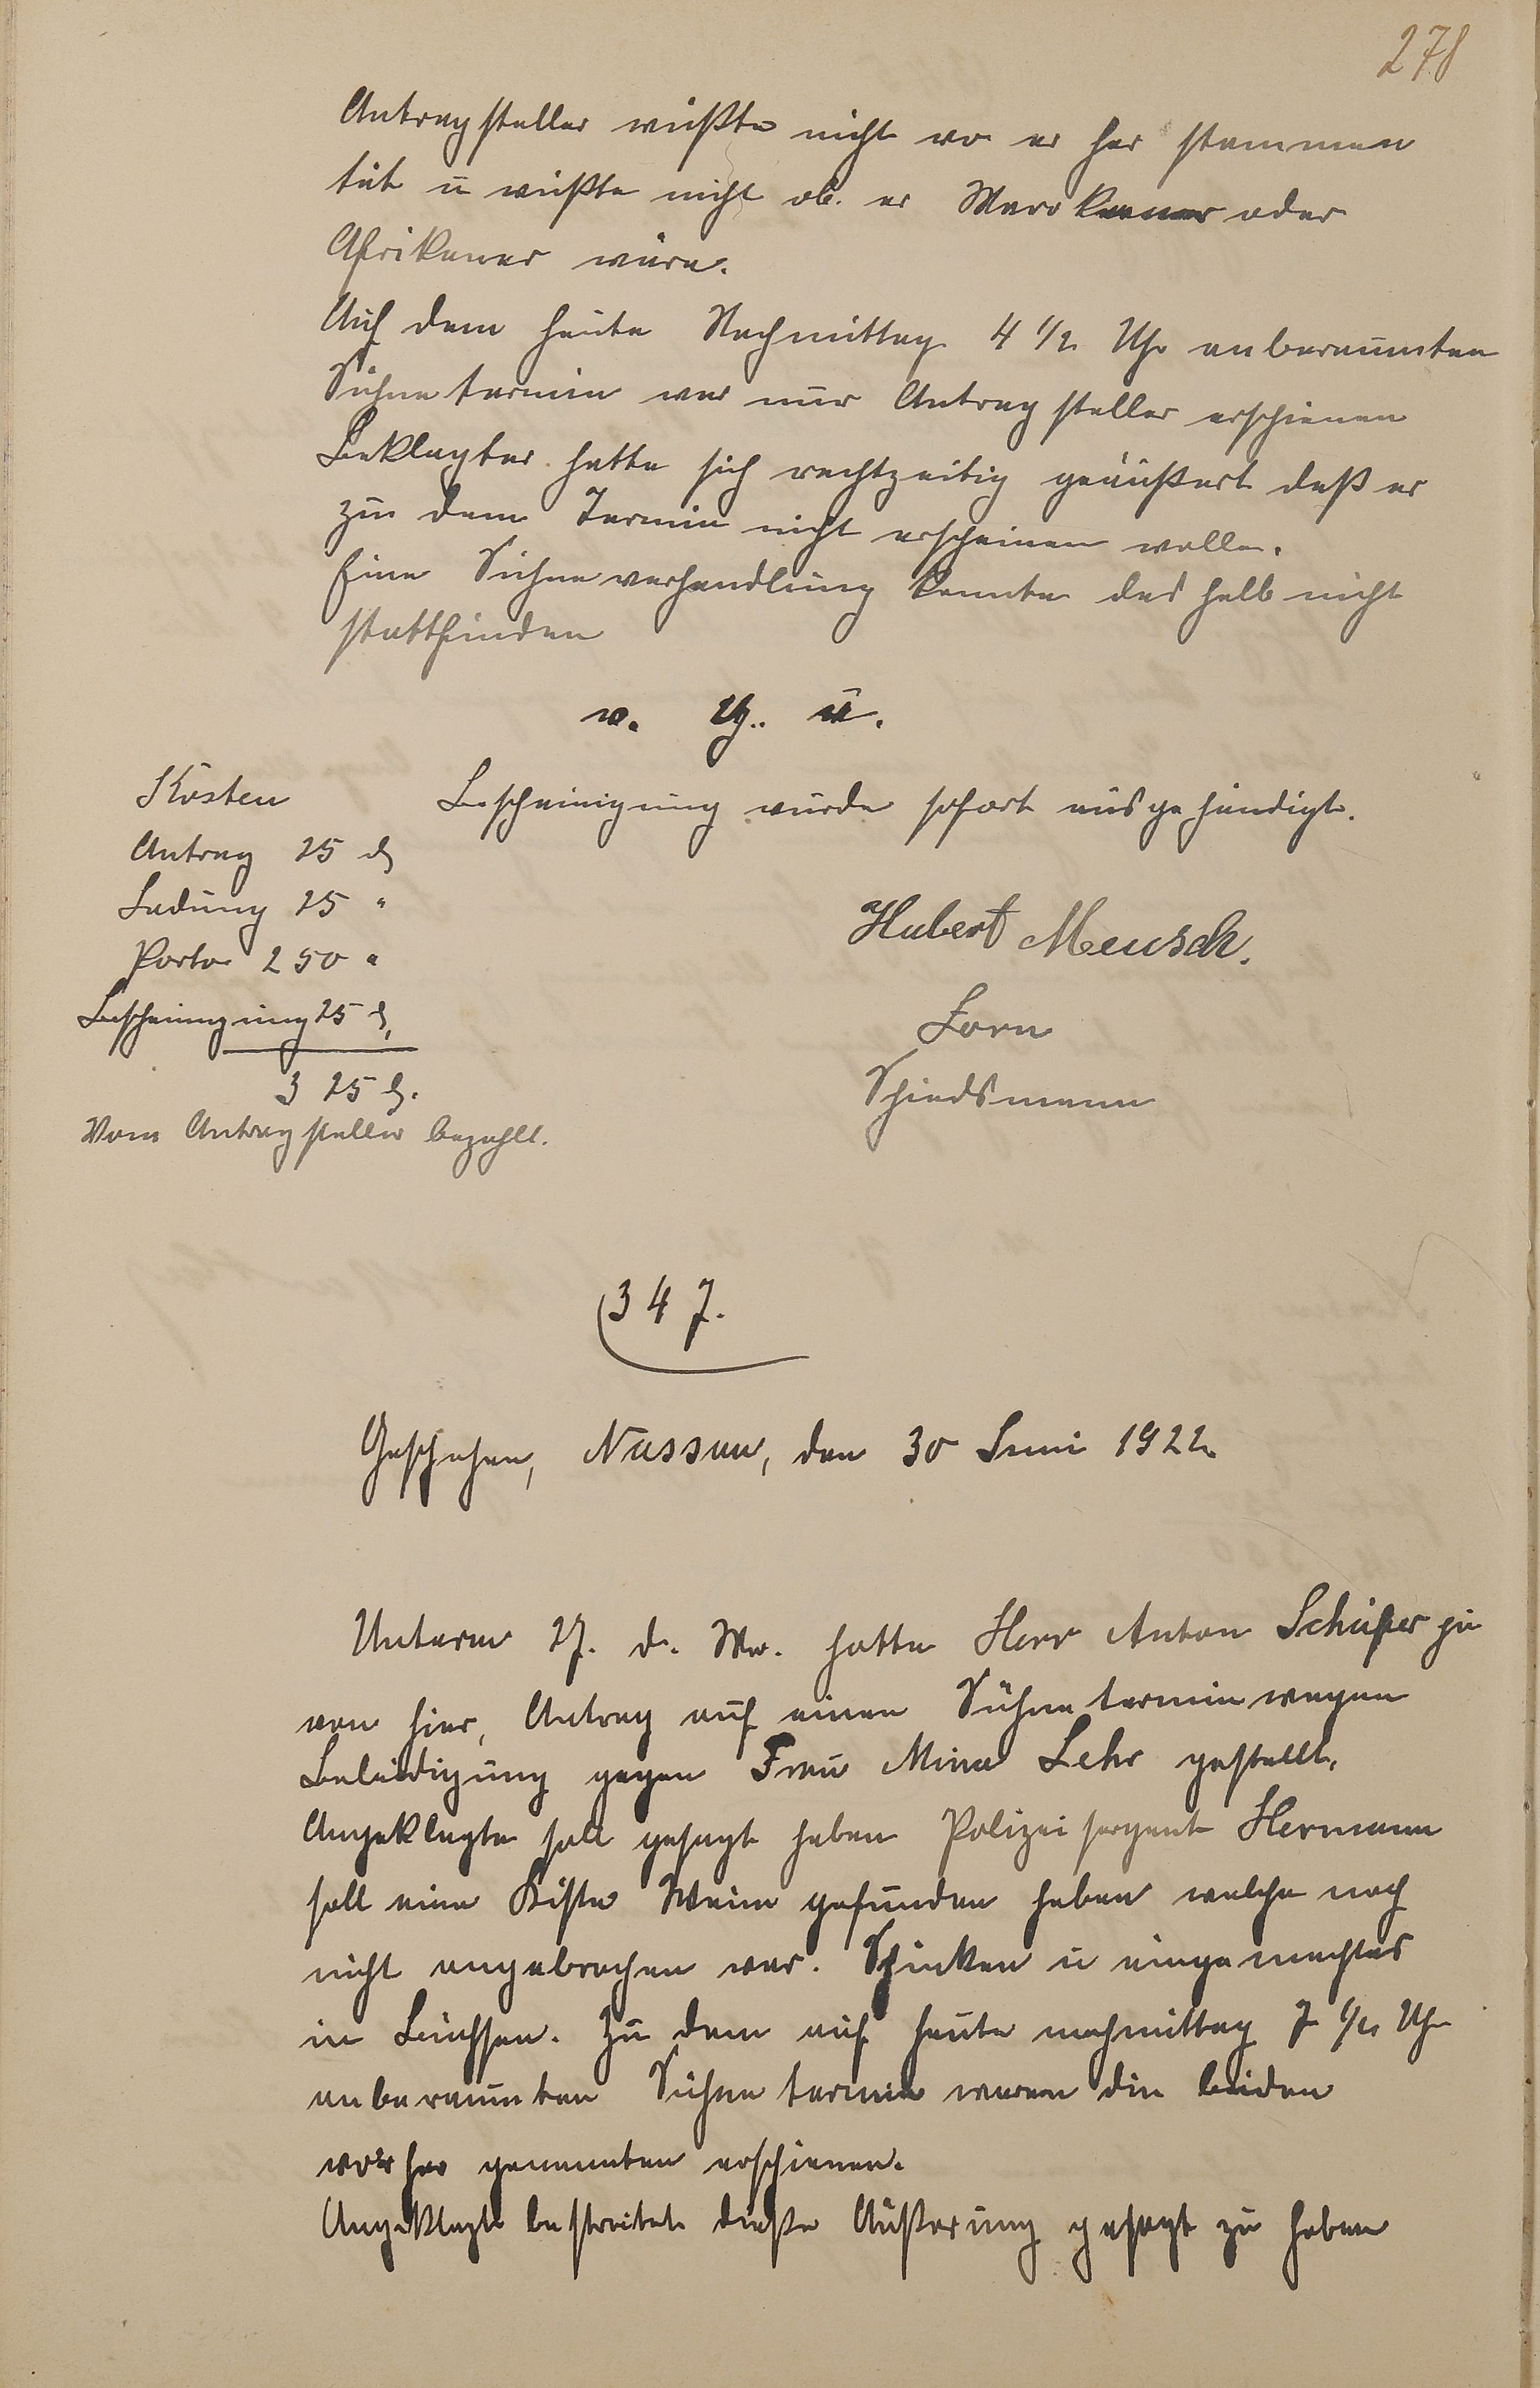 278
Antragsteller wüßte nicht wo er her stammen
tät u wüßte nicht ob. er Marokaner oder
Afrikaner wäre.
Auf dem heute Nachmittag 4 1/2 Uhr anberaumten
Sühnetermin war nur Antragsteller erschienen
Beklagter hatte sich rechtzeitig geäußert daß er
zu dem Termin nicht erscheinen wolle.
Eine Sühneverhandlung konnte des halb nicht
stattfinden
v. g. u.
Bescheinigung wurde sofort ausgehändigt.
Kosten
Antrag 25 ₰
Ladung 25 "
Porto 2 50 "
Bescheinigung 25 ₰
3 25 ₰.
Vom Antragsteller bezahlt.
Hubert Meusch.
Zorn
Schiedsmann
347.
Geschehen, Nassau, den 30 Juni 1922
Unterm 27. d. M. hatte Herr Anton Schäfer
von hier, Antrag auf einen Sühnetermin wegen
Beleidigung gegen Frau Mina Lehr gestellt.
Angeklagte soll gesagt haben Polizei sergent Hermann
soll eine Kiste Wein gefunden haben welche noch
nicht angebrochen war. Schinken u eingemachtes
in Büchsen. Zu dem auf heute nachmittag 7 1/2 Uhr
anberaumten Sühnetermin waren die beiden
vorher genannten erschienen.
Angeklagte bestreitet diese Äußerung gesagt zu haben